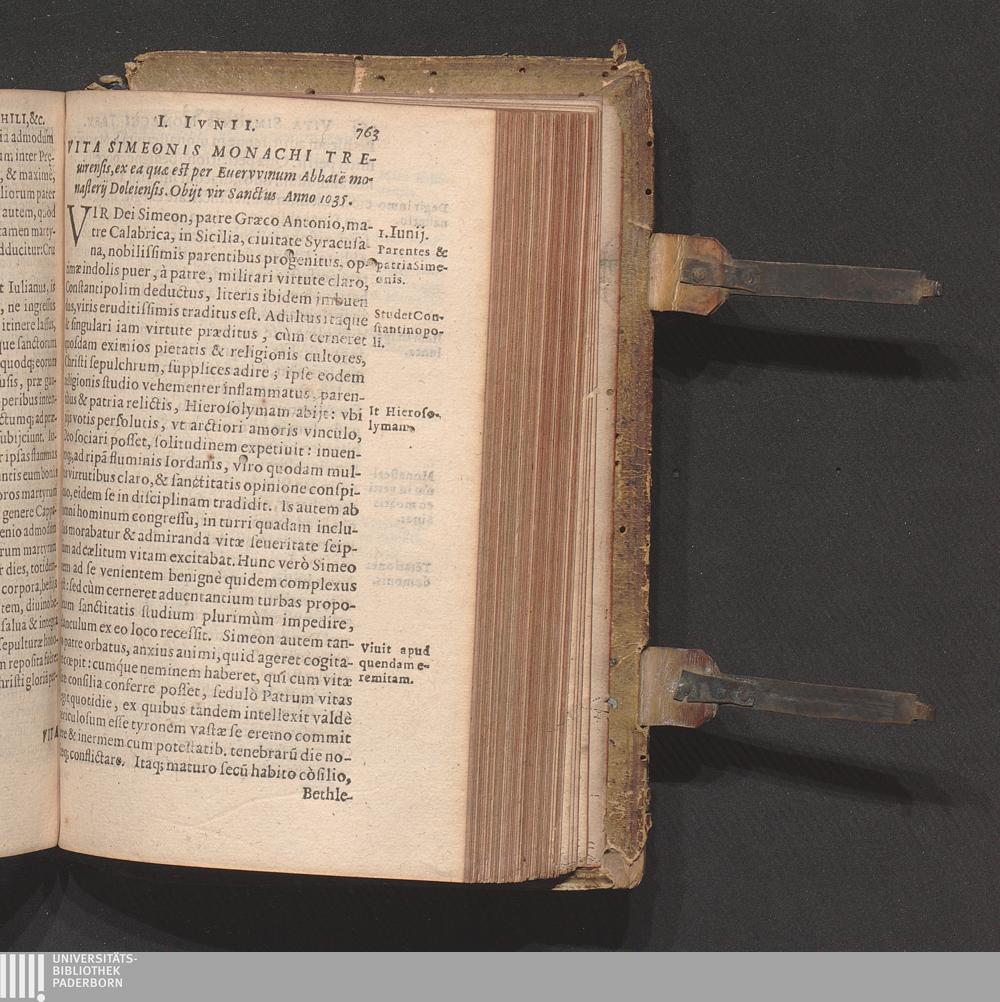 HILI, &c.
ia admodũm
um inter Præ-
, & maximè,
liorum pater
autem, quod
tamen marty-
dducitur: Cru
t Iulianus, is
, ne ingressus
itinere lassus,
que sanctorum
quodq; eorum
usis, præ gau-
peribus inten-
ctumq; ad præ-
ubijciunt.
r ipsas flammas
antis eum bonis
oros martyrum
genere Cappa-
enio admodum
rum martyrum
r dies, totidem-
corpora, bestijs
tem, diuino be-
salua & integra
sepulturæ hono-
m reposita fulge-
hristi gloriã per-
VITA
I. IVNII. 763
VITA SIMEONIS MONACHI TRE-
uirensis, ex ea quæ est per Eueruvinum Abbatẽ mo-
nasterij Doleiensis. Obijt vir Sanctus Anno 1035.
VIR Dei Simeon, patre Græco Antonio, ma-
tre Calabrica, in Sicilia, ciuitate Syracusa-
na, nobilissimis parentibus progenitus, op-
timæ indolis puer, à patre, militari virtute claro,
Constantipolim deductus, literis ibidem imbuen
dus, viris eruditissimis traditus est. Adultus itaque
& singulari iam virtute præditus, cùm cerneret
quosdam eximios pietatis & religionis cultores,
Christi sepulchrum, supplices adire; ipse eodem
religionis studio vehementer inflammatus, paren-
tibus & patria relictis, Hierosolymam abijt: vbi
eius votis persolutis, vt arctiori amoris vinculo,
Deo sociari posset, solitudinem expetiuit: inuen-
toq; ad ripã fluminis Iordanis, viro quodam mul-
tis virtutibus claro, & sanctitatis opinione conspi-
cuo, eidem se in disciplinam tradidit. Is autem ab
omni hominum congressu, in turri quadam inclu-
sus morabatur & admiranda vitæ seueritate seip-
sum ad cælitum vitam excitabat. Hunc verò Simeo
nem ad se venientem benignè quidem complexus
est: sed cùm cerneret aduentantium turbas propo-
situm sanctitatis studium plurimùm impedire,
clanculum ex eo loco recessit. Simeon autem tan-
to patre orbatus, anxius animi, quid ageret cogita-
re cœpit: cumque neminem haberet, qui cum vitæ
suæ consilia conferre posset, sedulò Patrum vitas
legit quotidie, ex quibus tandem intellexit valdè
periculosum esse tyronem vastæ se eremo commit
tere & inermem cum potestatib. tenebrarũ die no-
cteq; conflictare. Itaq; maturo secũ habito cõsilio,
Bethle-
1. Iunij.
Parentes &
patria Sime-
onis.
Studet Con-
stantinopo-
li.
It Hieroso-
lymam.
Viuit apud
quendam e-
remitam.
UNIVERSITÄTS-
BIBLIOTHEK
PADERBORN